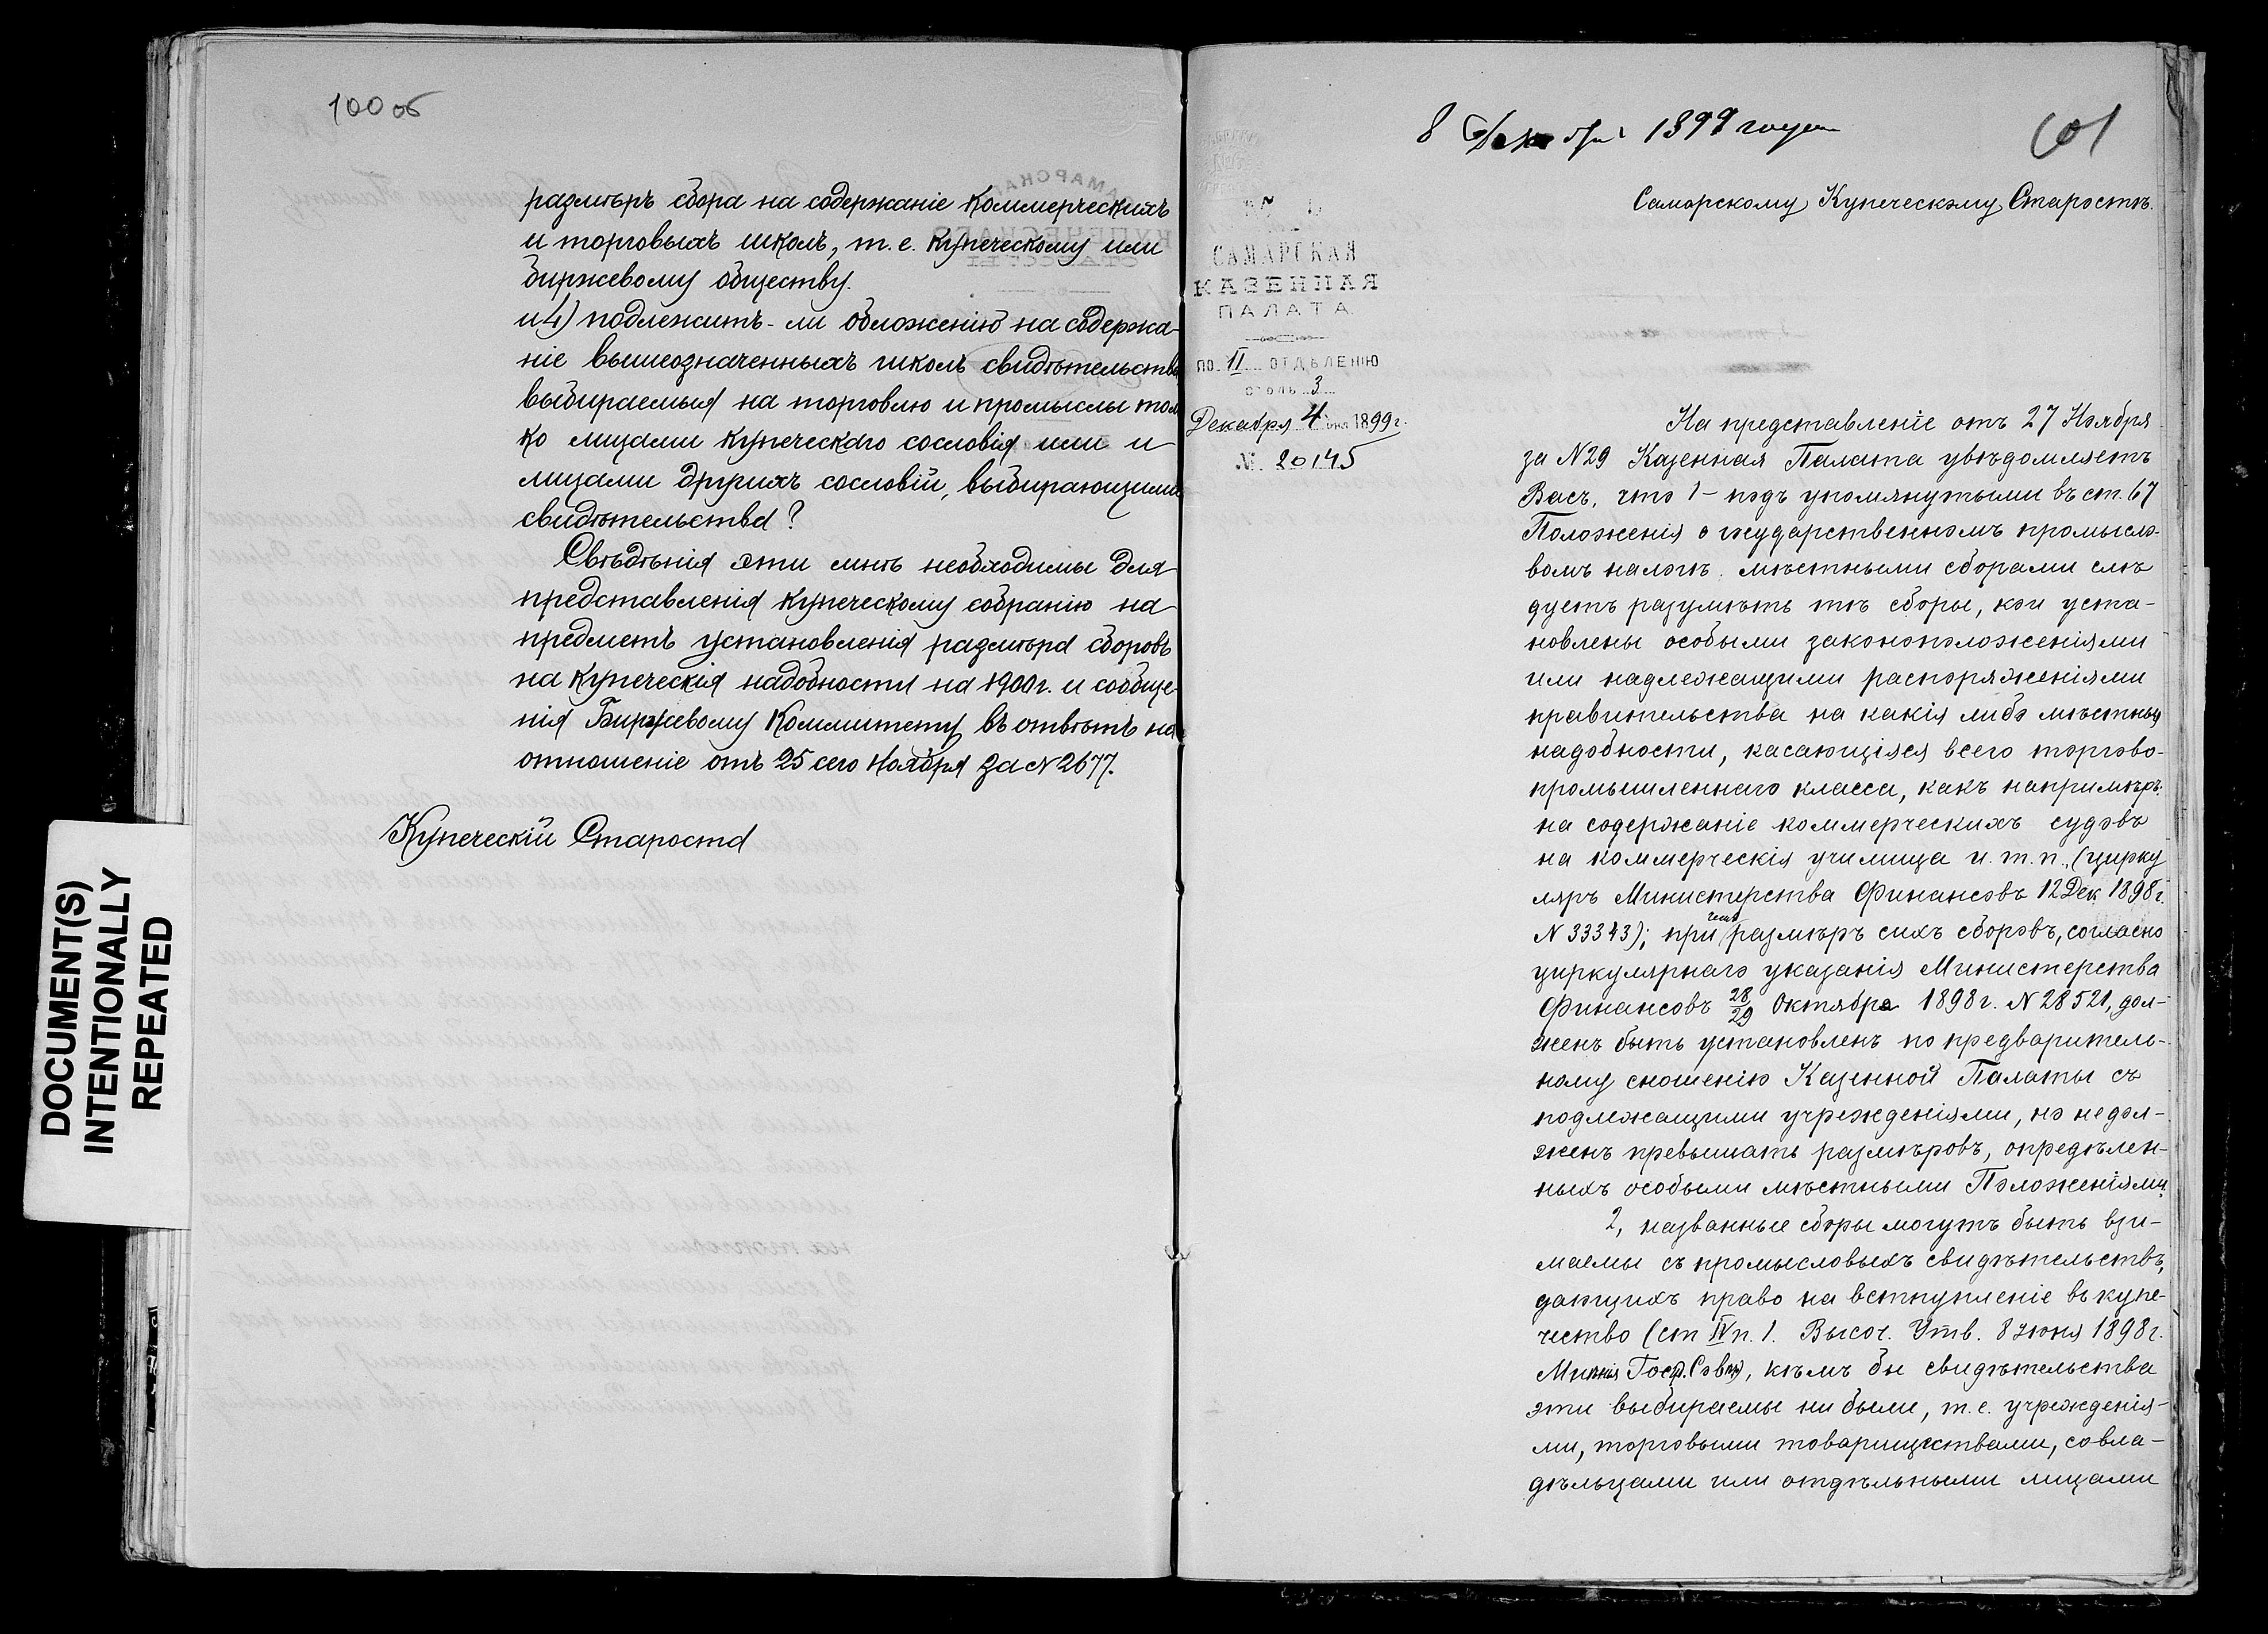 100 об
размѣръ сбора на содержаніе Коммерческихъ
и торговыхъ школъ, т. е. купеческому или
биржевому обществу.
и 4) подлежитъ-ли обложенію на содержа-
ніе вышеозначенныхъ школъ свидѣтельства,
выбираемыя на торговлю и промыслы толь
ко лицами купеческаго сословія или и
лицами другихъ сословій, выбирающими
свидѣтельства?
Свѣдѣнія эти мнѣ необходимы для
представленія купеческому собранію на
предметъ установленія размѣра сборовъ
на купеческія надобности на 1900 г. и сообще-
нія Биржевому Коммитету въ отвѣтъ на
отношеніе отъ 25 сего Ноября за N 2677.
Купеческій Староста
DOCUMENT(S)
INTENTIONALLY
REPEATED
8 Декабря 1899 года
101
САМАРСКАЯ
КАЗЕННАЯ
ПАЛАТА
ПО II ОТДѢЛЕНІЮ
столъ 3
Декабря 4 дня 1899 г.
№ 20145
Самарскому Купеческому Старостѣ.
На представленіе отъ 27 Ноября
за N 29 Казенная Палата увѣдомляетъ
Васъ, что 1- подъ упомянутыми въ ст. 67
Положенія о государственномъ промысло-
вомъ налогѣ мѣстными сборами слѣ
дуетъ разумѣть тѣ сборы, кои уста-
новлены особыми законоположеніями
или надлежащими распоряженіями
правительства на какія либо мѣстныя
надобности, касающіяся всего торгово-
промышленнаго класса, какъ напримѣръ:
на содержаніе коммерческихъ судовъ
на коммерческія училища и. т. п., (цирку
ляръ Министерства Финансовъ 12 Дек. 1898 г.
N 33343); при чемъ размѣръ сихъ сборовъ, согласно
циркулярнаго указанія Министерства
Финансовъ 28/29 Октября 1898 г. N 28521, дол-
женъ быть установленъ по предваритель-
ному сношенію Казенной Палаты съ
подлежащими учрежденіями, но не дол-
женъ превышать размѣровъ, опредѣлен-
ныхъ особыми мѣстными Положеніями.
2, названные сборы могутъ быть взи-
маемы съ промысловыхъ свидѣтельствъ,
дающихъ право на вступленіе въ купе-
чество (ст IV п. 1. Высоч. Утв. 8 Іюня 1898 г.
Мнѣнія Госуд. Совѣта), кѣмъ бы свидѣтельства
эти выбираемы ни были, т. е. учрежденія-
ми, торговыми товариществами, совла-
дѣльцами или отдѣльными лицами